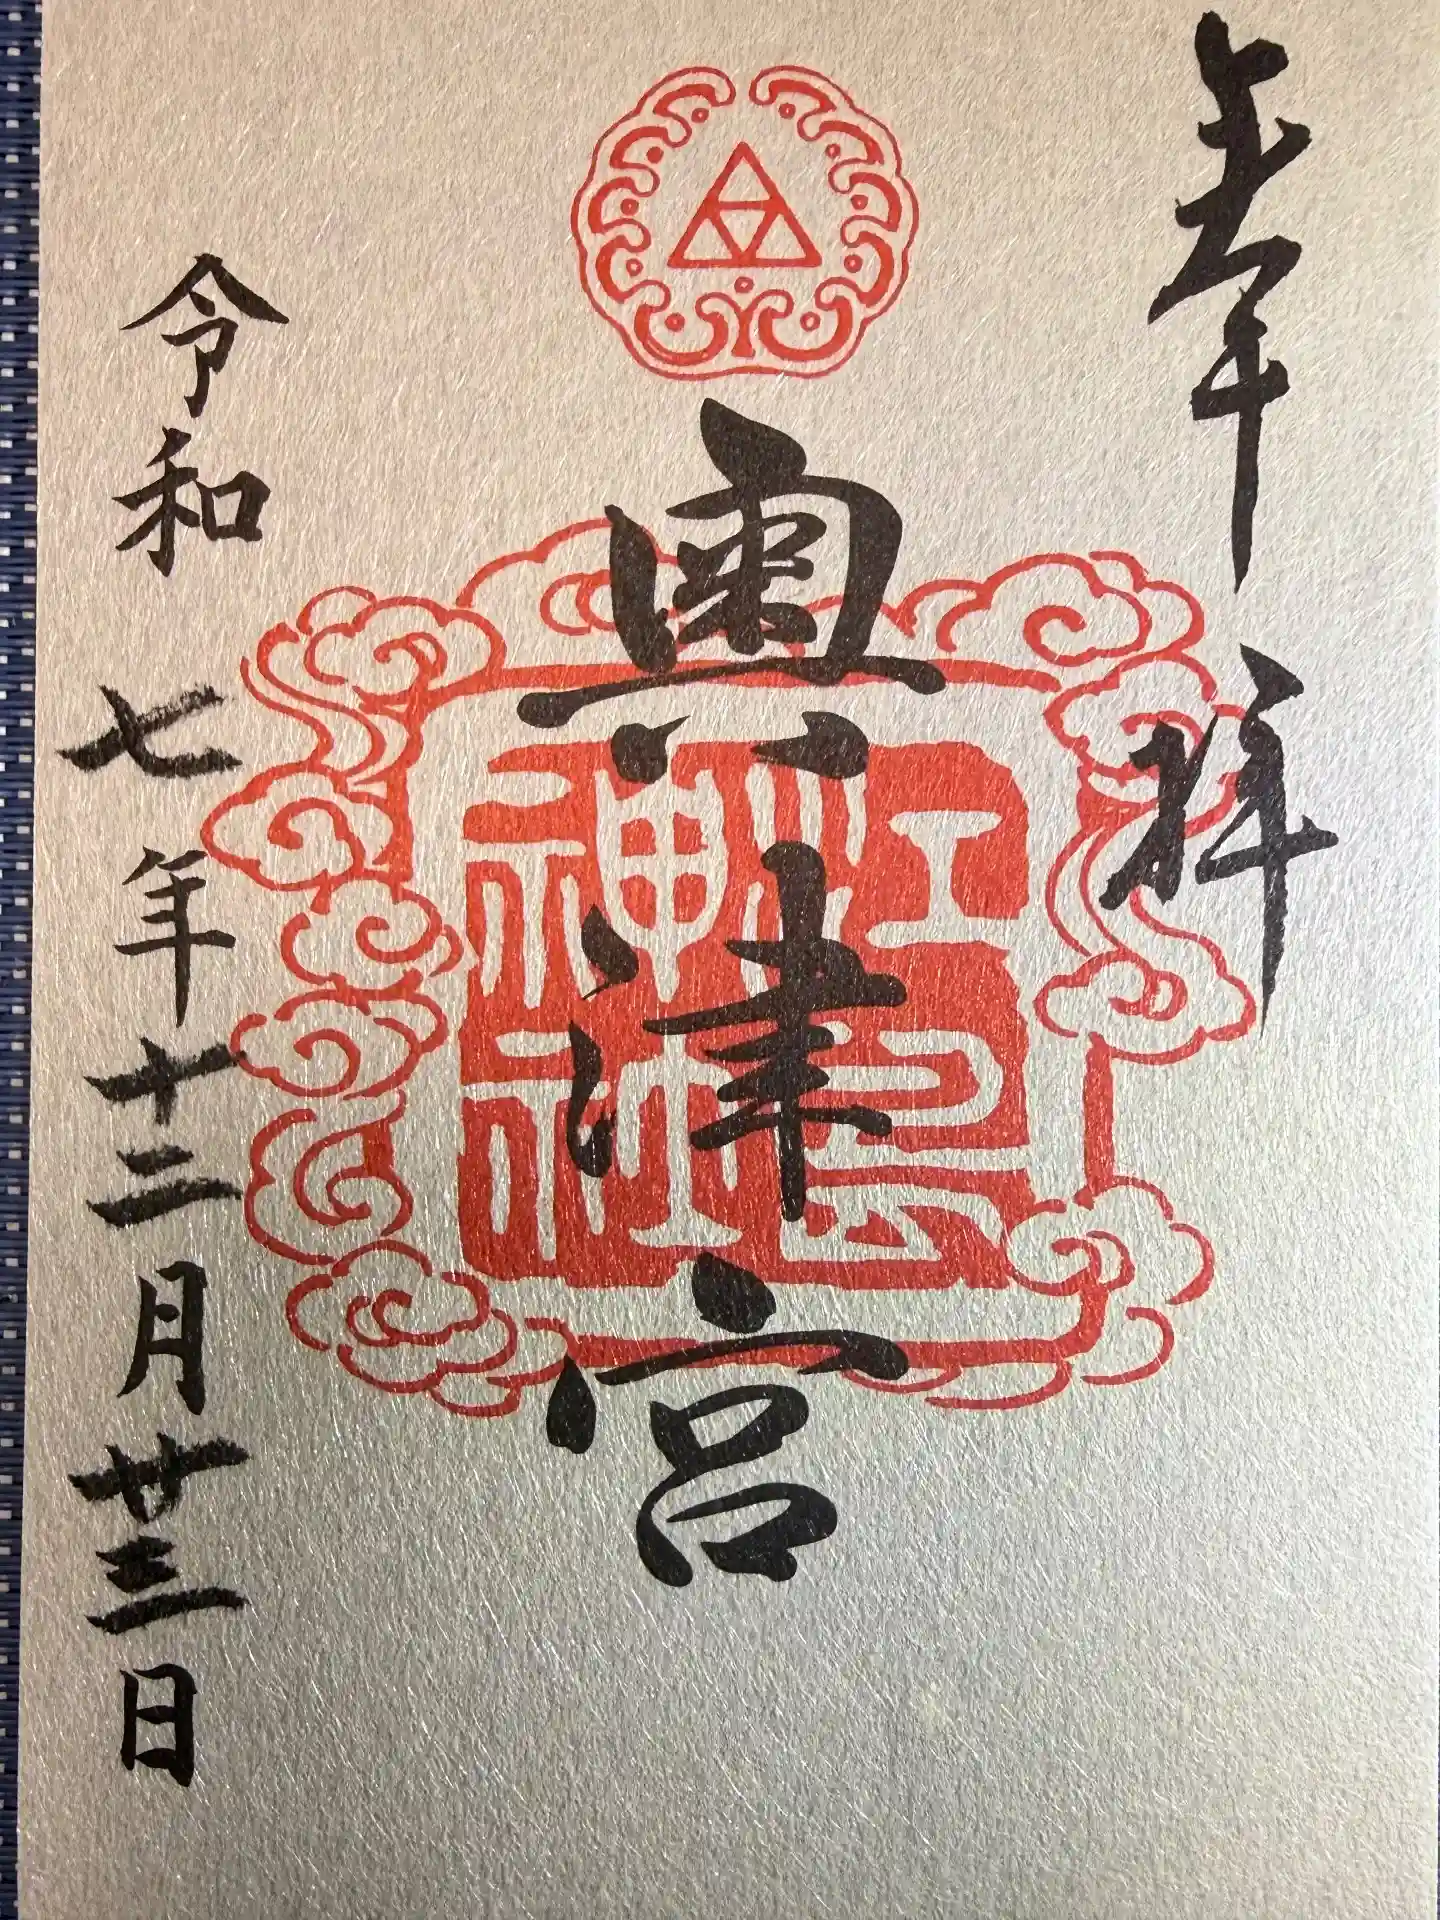 奉拝
奥津宮
江島神社
令和七年十二月廿三日